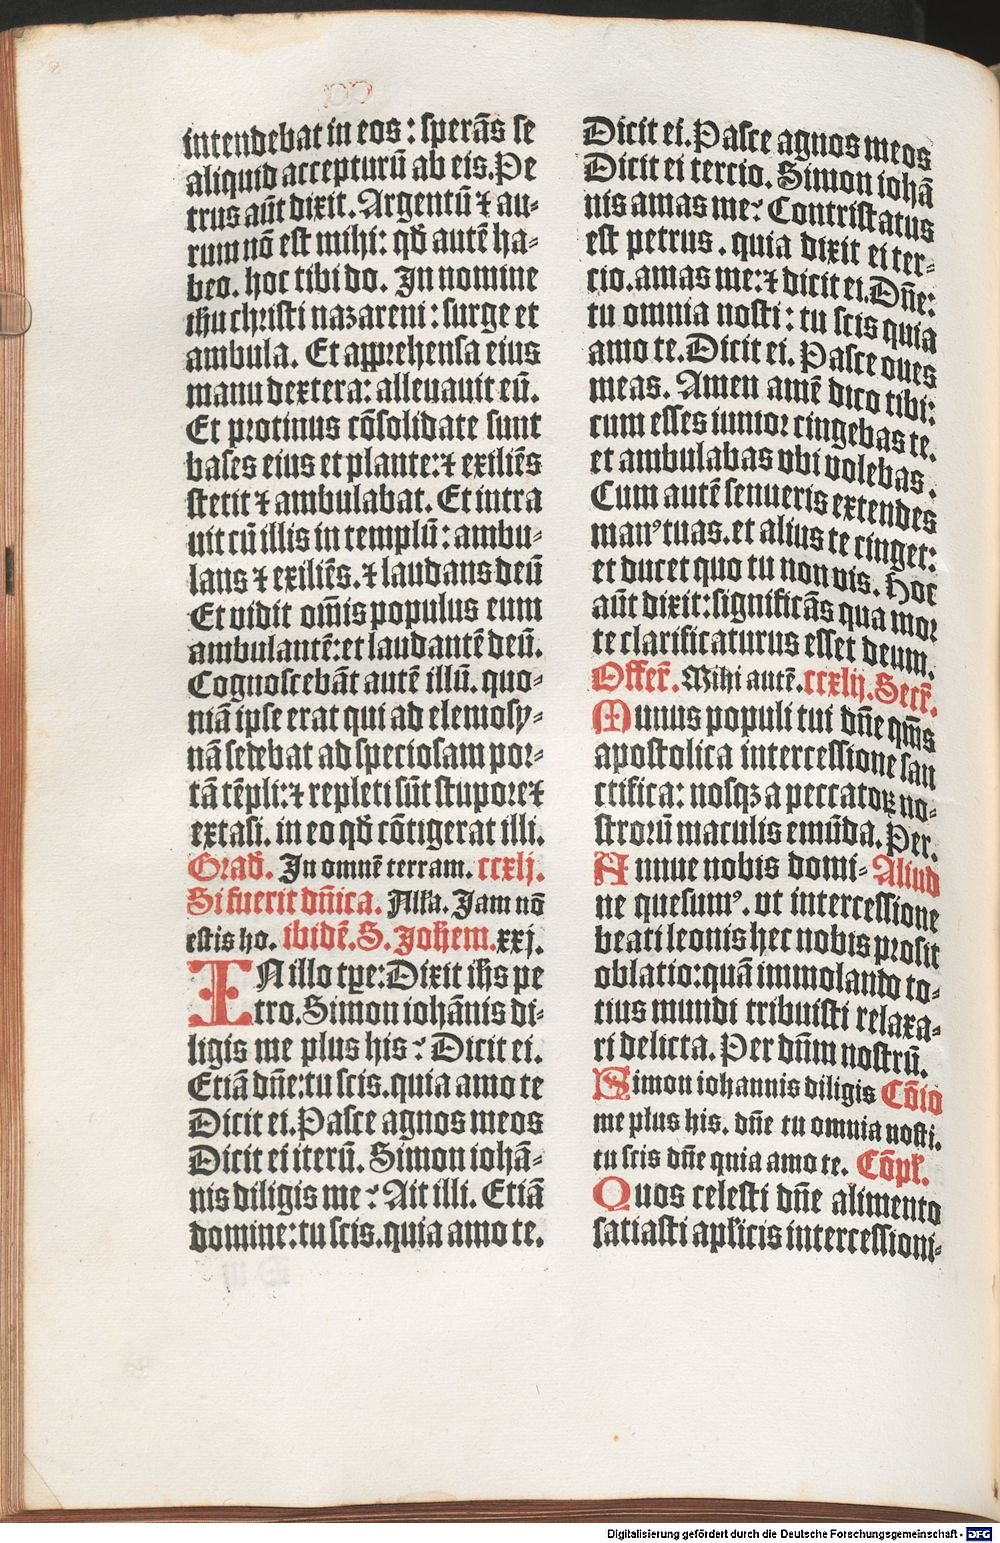 intendebat in eos : sperãs se
aliquid accepturũ ab eis. Pe
trus aũt dixit. Argentũ ⁊ au⸗
rum nõ est mihi: qđ autẽ ha⸗
beo. hoc tibi do. In nomine
ihu christi nazareni : surge et
ambula. Et apprehensa eius
manu dextera: alleuauit eũ.
Et protinus cõsolidate sunt
bases eius et plante: ⁊ exiliẽs
stetit ⁊ ambulabat. Et intra
uit cũ illis in templũ : ambu⸗
lans ⁊ exiliẽs. ⁊ laudans deũ
Et vidit om̃is populus eum
ambulantẽ: et laudantẽ deũ.
Cognoscebãt autẽ illũ. quo⸗
niã ipse erat qui ad elemosy⸗
nã sedebat ad speciosam por⸗
tã tẽpli: ⁊ repleti sũt stupore ⁊
extasi. in eo qđ cõtigerat illi.
Grad. In omnẽ terram. ccxlj.
Si fuerit dñica. Alľa. Jam nõ
estis ho. ibidẽ. S. Joħem. xxj.
IN illo tꝑe: Dixit iħs pe
tro. Simon iohãnis di⸗
ligis me plus his? Dicit ei.
Etiã dñe: tu scis. quia amo te
Dicit ei. Pasce agnos meos
Dicit ei iterũ. Simon iohã⸗
nis diligis me? Ait illi. Etiã
domine: tu scis. quia amo te.
Dicit ei. Pasce agnos meos
Dicit ei tercio. Simon iohã
nis amas me? Contristatus
est petrus . quia dixit ei ter⸗
cio. amas me: ⁊ dicit ei. Dñe:
tu omnia nosti : tu scis quia
amo te. Dicit ei. Pasce oues
meas. Amen amẽ dico tibi:
cum esses iunior cingebas te.
et ambulabas vbi volebas .
Cum autẽ senueris extendes
manꝰ tuas. et alius te cinget:
et ducet quo tu non vis. Hoc
aũt dixit: significãs qua mor
te clarificaturus esset deum.
Offer̃. Mihi autẽ. ccxlij. Secr̃.
Munus populi tui dñe qm̃s
apostolica intercessione san
ctifica: nosqꝫ a peccatoꝝ no⸗
strorũ maculis emũda. Per.
Annue nobis domi⸗ Aliud
ne quesumꝰ. vt intercessione
beati leonis hec nobis prosit
oblatio: quã immolando to⸗
tius mundi tribuisti relaxa⸗
ri delicta. Per dñm nostrũ.
Simon iohannis diligis Cõio
me plus his. dñe tu omnia nosti.
tu scis dñe quia amo te. Cõpľ.
Quos celesti dñe alimento
satiasti apľicis intercessioni⸗
Digitalisierung gefördert durch die Deutsche Forschungsgemeinschaft - DFG